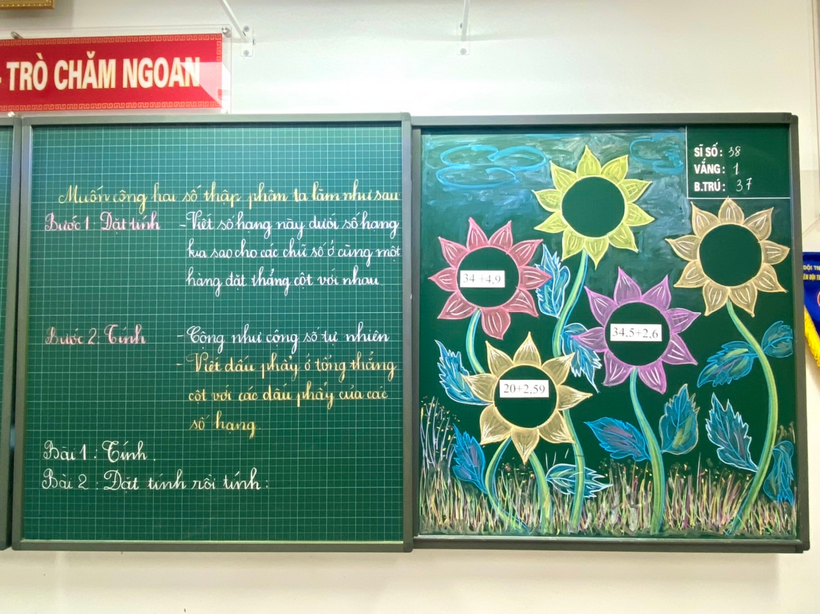 TRÒ CHĂM NGOAN
Muốn cộng hai số thập phân ta làm như sau
Bước 1: Đặt tính - Viết số hạng này dưới số hạng
kia sao cho các chữ số ở cùng một
hàng đặt thẳng cột với nhau.
Bước 2: Tính - Cộng như cộng số tự nhiên
- Viết dấu phẩy ở tổng thẳng
cột với các dấu phẩy của các
số hạng
Bài 1: Tính.
Bài 2: Đặt tính rồi tính:
SĨ SỐ: 38
VẮNG: 1
B.TRÚ: 37
34,5+2,6
20+2,59